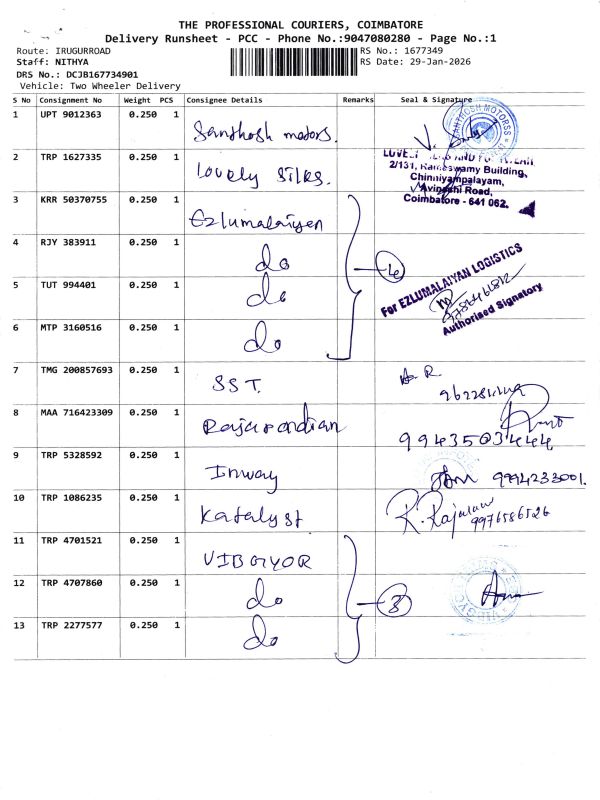 THE PROFESSIONAL COURIERS, COIMBATORE
Delivery Runsheet - PCC - Phone No.:9047080280 - Page No.:1
Route: IRUGURROAD
RS No.: 1677349
Staff: NITHYA
RS Date: 29-Jan-2026
DRS No.: DCJB167734901
Vehicle: Two Wheeler Delivery
S No Consignment No Weight PCS Consignee Details Remarks Seal & Signature
1 UPT 9012363 0.250 1 Santhosh motors.
2 TRP 1627335 0.250 1 Lovely Silks.
2/131, Rameswamy Building,
Chinniyampalayam,
Avinashi Road,
Coimbatore - 641 062.
3 KRR 50370755 0.250 1 Ezlumalaiyen
4 RJY 383911 0.250 1 do 4
For EZLUMALAIYAN LOGISTICS
Authorised Signatory
5 TUT 994401 0.250 1 do
6 MTP 3160516 0.250 1 do
7 TMG 200857693 0.250 1 SST.
8 MAA 716423309 0.250 1 Rajapandian
9943503444
9 TRP 5328592 0.250 1 Inway 9994233001.
10 TRP 1086235 0.250 1 Katalyst. R. Rajalaw
9976586526
11 TRP 4701521 0.250 1 VIBGYOR
12 TRP 4707860 0.250 1 do 3
13 TRP 2277577 0.250 1 do